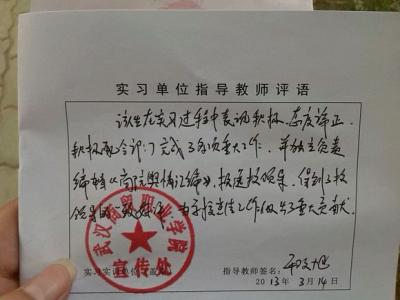 实习单位指导教师评语
该生在实习过程中表现积极,态度端正,
积极配合部门完成了各项重大工作,并独立负责
编辑《商院舆情汇编》,报送校领导,得到了校
领导的一致好评,为了 工作做出了重大贡献。
武汉商贸职业学院
宣传部
实习实训单位
指导教师签名:
2013年3月14日